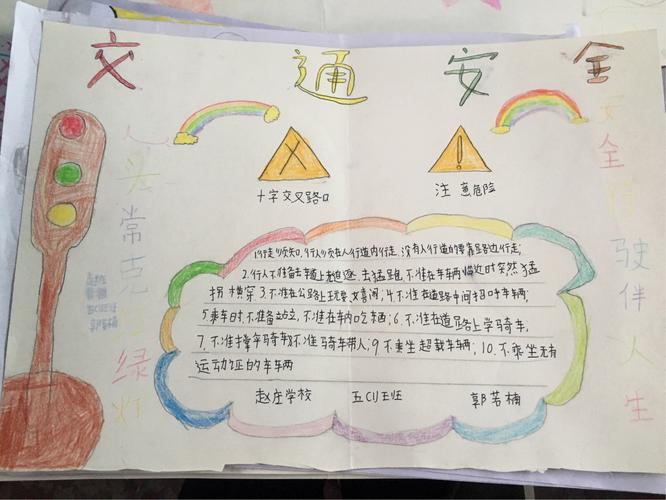 交通安全
人头常克红绿灯
安全行驶伴人生
十字交叉路口
注意危险
1.行走须知.行人须在人行道内行走,没有人行道的要靠路边行走;
2.行人不准在车道上追逐.去猛跑,不准在车辆临近时突然猛
拐横穿 3.不准在公路上玩耍、嬉闹;4.不准在道路中间招呼车辆;
5.乘车时不准站立,不准在车内吃东西;6.不准在道路上学骑车,
7.不准撑伞骑车 8不准骑车带人;9不乘坐超载车辆;10.不乘坐无有
运动证的车辆
赵庄学校 五(1)班 郭若楠